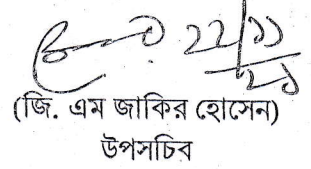 ২২/১১
২১
(জি. এম জাকির হোসেন)
উপসচিব